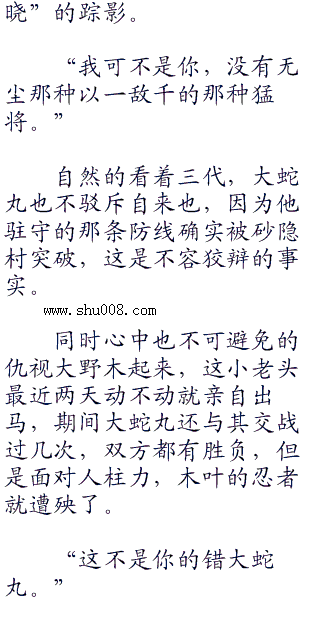 晓”的踪影。
“我可不是你，没有无
尘那种以一敌千的那种猛
将。”
自然的看着三代，大蛇
丸也不驳斥自来也，因为他
驻守的那条防线确实被砂隐
村突破，这是不容狡辩的事
实。
www.shu008.com
同时心中也不可避免的
仇视大野木起来，这小老头
最近两天动不动就亲自出
马，期间大蛇丸还与其交战
过几次，双方都有胜负，但
是面对人柱力，木叶的忍者
就遭殃了。
“这不是你的错大蛇
丸。”